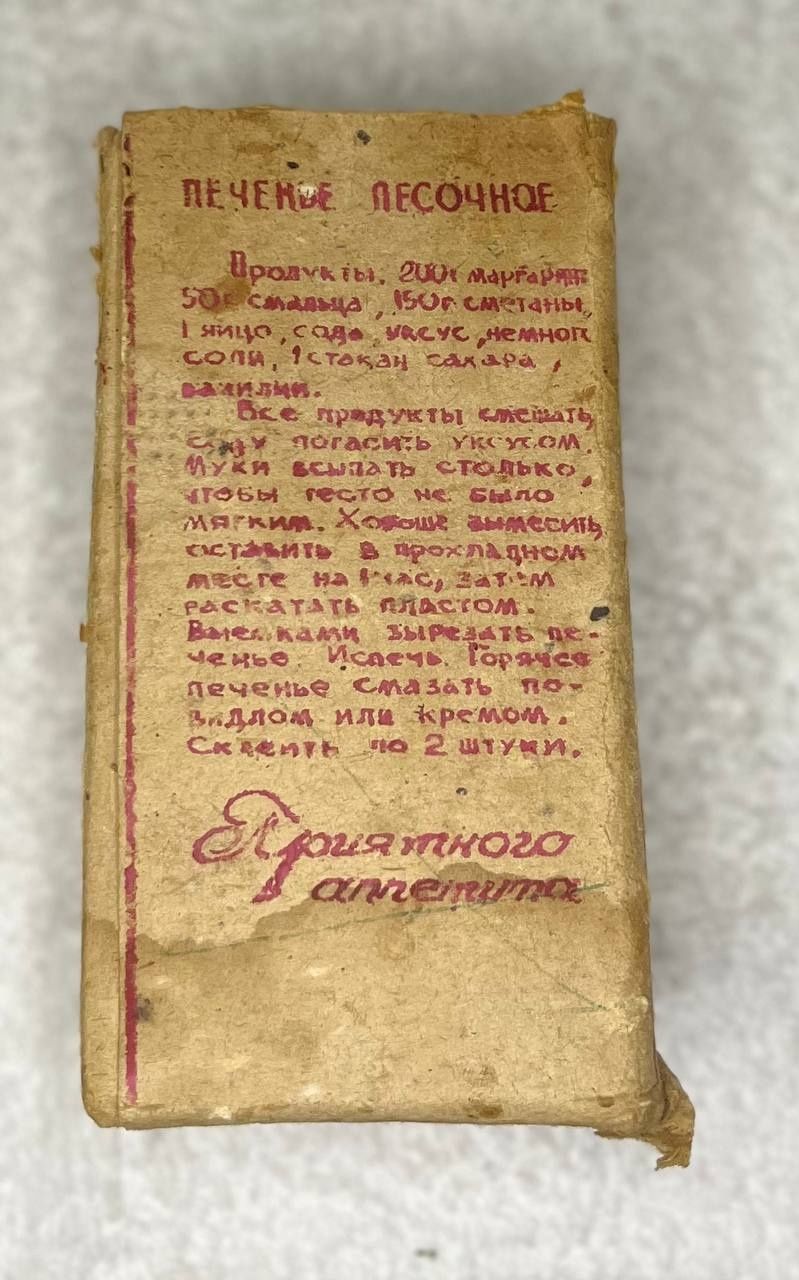 ПЕЧЕНЬЕ ПЕСОЧНОЕ
Продукты, 200г маргарин
50г смальца, 150г сметаны,
1 яйцо, сода, уксус, немног
соли, 1 стакан сахара,
ванилин.
Все продукты смешать,
соду погасить уксусом.
Муки всыпать столько,
чтобы тесто не было
мягким. Хорошо вымесить,
оставить в прохладном
месте на 1 час, затем
раскатать пластом.
Выемками вырезать пе-
ченье. Испечь. Горячее
печенье смазать по-
видлом или кремом.
Склеить по 2 штуки.
Приятного
аппетита